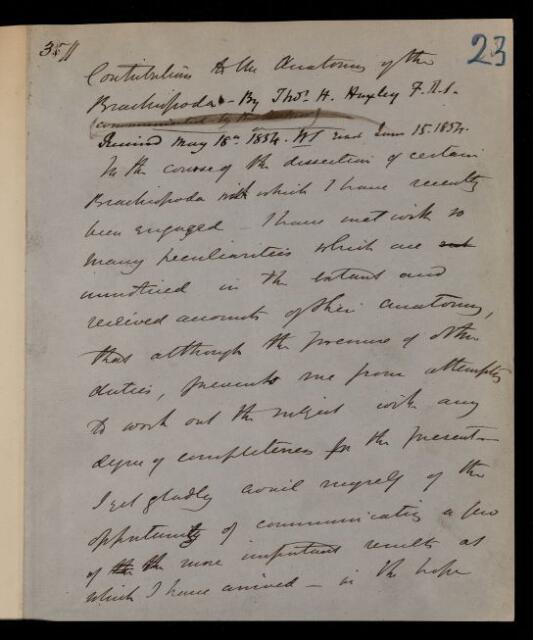 35
23
Contributions to the Anatomy of the
Brachiopoda - By Thos. H. Huxley F.R.S.
(communicated by the
Received May 18th 1854. read June 15. 1854.
In the course of the dissection of certain
Brachiopoda with which I have recently
been engaged - I have met with so
many peculiarities which are
unnoticed in the extant and
received accounts of their anatomy,
that although the pressure of other
duties, prevents me from attempting
to work out the subject with any
degree of completeness for the present -
I yet gladly avail myself of the
opportunity of communicating a few
of the more important results at
which I have arrived - in the hope